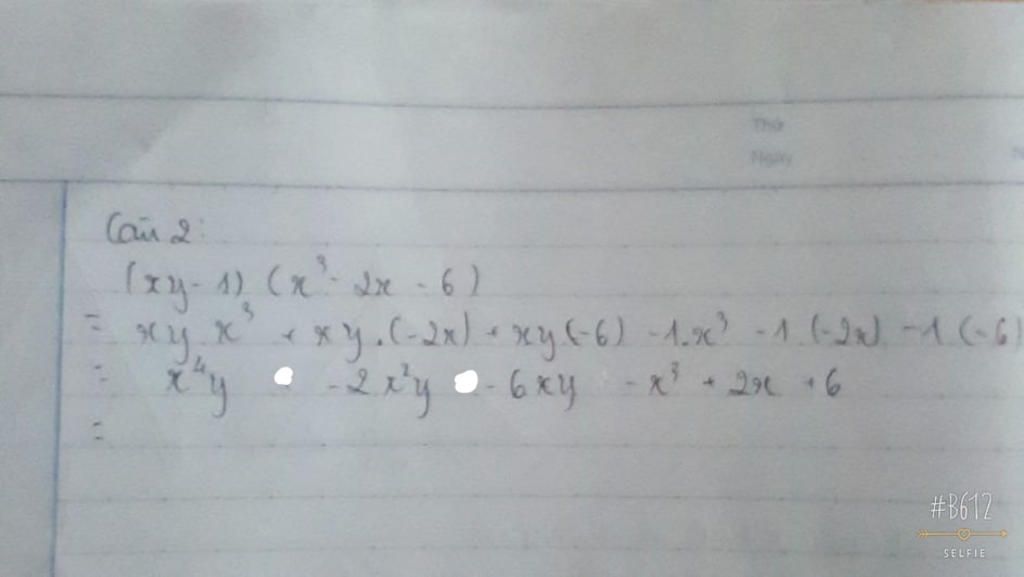 Thứ
Ngày
Câu 2:
(xy - 1) (x³ - 2x - 6)
= xy.x³ + xy.(-2x) + xy.(-6) - 1.x³ - 1.(-2x) - 1.(-6)
= x⁴y - 2x²y - 6xy - x³ + 2x + 6
=
#B612
SELFIE